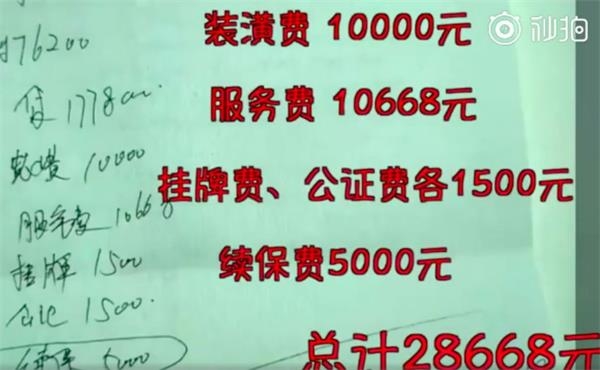 秒拍
76200
装潢费 10000元
贷 1778
服务费 10668元
装潢费 10000
挂牌费、公证费各1500元
服务费 10668
挂牌 1500
续保费5000元
公证 1500.
续保 5000
总计28668元